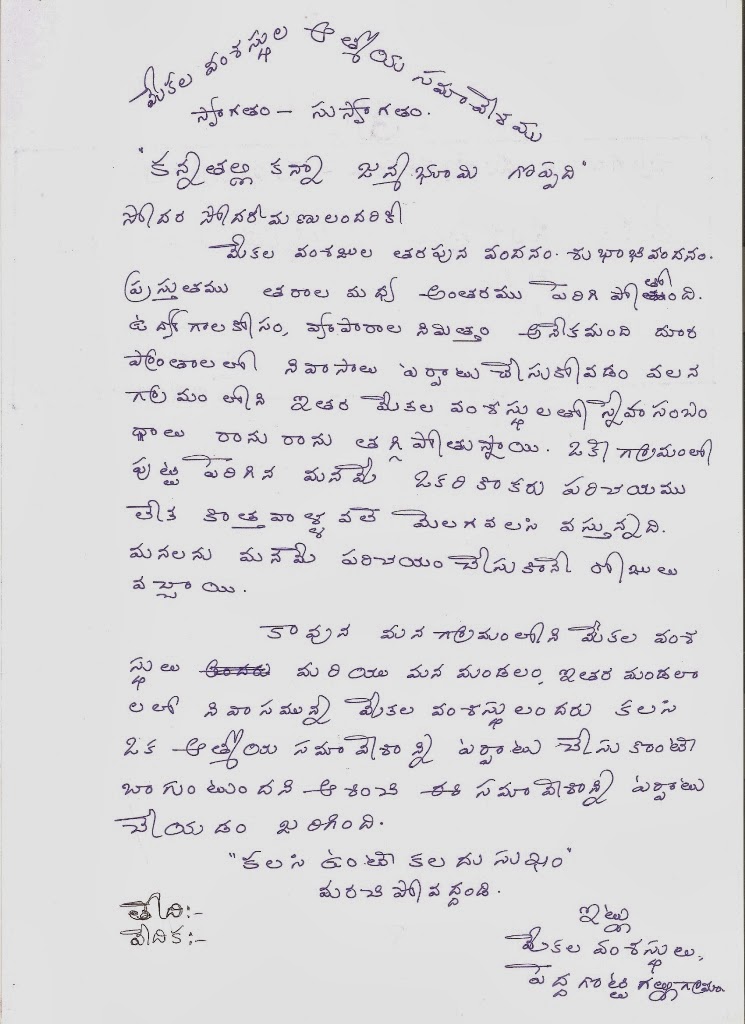 మేకల వంశస్థుల ఆత్మీయ సమావేశము
స్వాగతం - సుస్వాగతం.
"కన్నతల్లి కన్నా జన్మభూమి గొప్పది"
సోదర సోదరీమణులందరికి
మేకల వంశజుల తరపున వందనం. శుభాభివందనం.
ప్రస్తుతము తరాల మధ్య అంతరము పెరిగి పోతోంది.
ఉద్యోగాలకోసం, వ్యాపారాల నిమిత్తం అనేకమంది దూర
ప్రాంతాలలో నివాసాలు ఏర్పాటు చేసుకోవడం వలన
గ్రామంలోని ఇతర మేకల వంశస్థులతో స్నేహసంబం
ధాలు రాను రాను తగ్గిపోతున్నాయి. ఒకే గ్రామంలో
పుట్టి పెరిగిన మనమే ఒకరికొకరు పరిచయము
లేక కొత్తవాళ్ళ వలె మెలగవలసి వస్తున్నది.
మనలను మనమే పరిచయం చేసుకొనే రోజులు
వచ్చాయి.
కావున మన గ్రామంలోని మేకల వంశ
స్థులు అందరు మరియు మన మండలం, ఇతర మండలా
లలో నివాసమున్న మేకల వంశస్థులందరు కలసి
ఒక ఆత్మీయ సమావేశాన్ని ఏర్పాటు చేసుకొంటే
బాగుంటుందని ఆశించి ఈ సమావేశాన్ని ఏర్పాటు
చేయడం జరిగింది.
"కలసి ఉంటే కలదు సుఖం"
మరచి పోవద్దండి.
తేది:-
వేదిక:-
ఇట్లు
మేకల వంశస్థులు,
పెద్దగొట్టిగల్లు గ్రామం